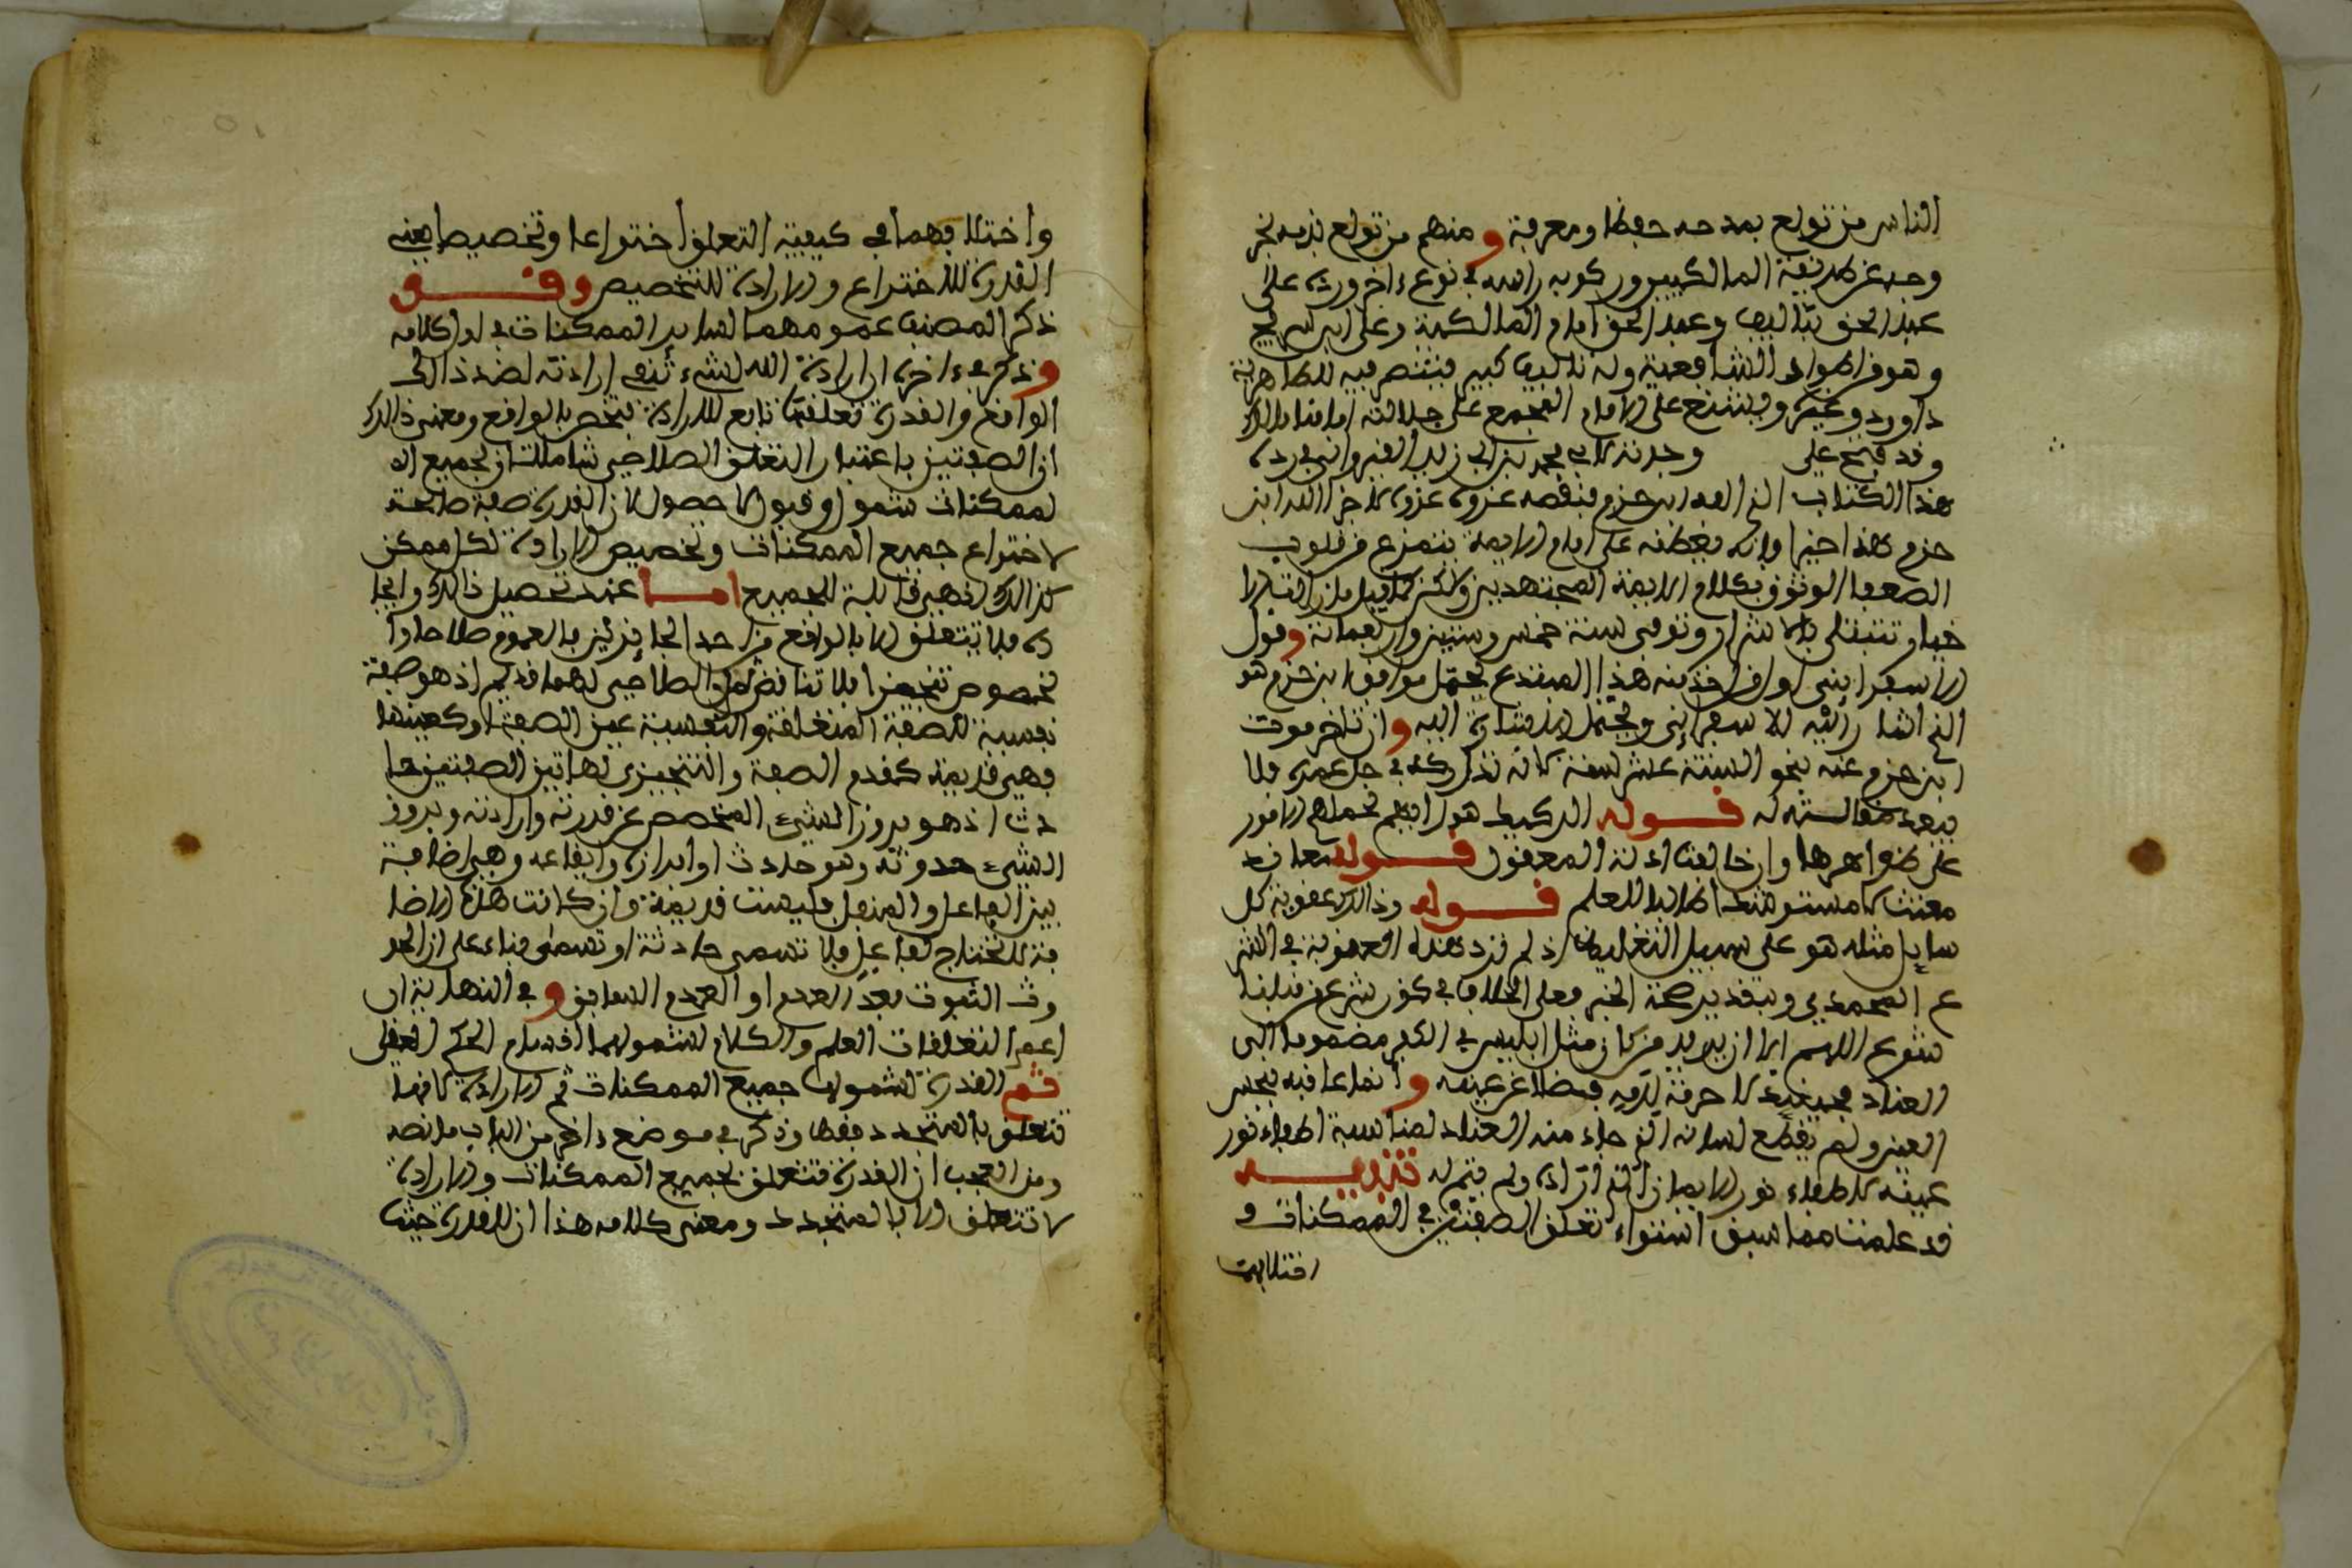 الناس من تولع بمدحه حفظا ومعرفة ومنهم من تولع بذمه
وجه عن طريقة المالكيين وركوبه راسه في نوع اخر ورده على
عبد الحق تئاليف وعبد الحق امام المالكية وعلى ابن سريج
وهو من اطواد الشافعية وله تئاليف كبير فينتصر فيه للظاهرية
داوود وغيره ويشنع على الامام المجمع على جلالته امامنا مالك
وقد فتح علي وجد نزلاء محمد بن ابي زيد القيرواني في رده
هذا الكتاب الذي الفه ابن حزم فنقضه عروة عروة لا جزا الله ابن
حزم هذا خيرا وانه يغطنه على امام الايمة ينتزع من قلوب
الضعفا الوثوق بكلام الايمة المجتهدين ولكن كما قيل ما زالت الا
خيار تبتلى بالاشرار وتوفي سنة خمس وستين واربعمائة وقول
الاسفرايني اول من اخذ منه هذا المبتدع يحتمل موافق ابن حزم هو
الذي اشار اليه الاسفرايني ويحتمل الاشارة اليه وان تاخر موت
ابن حزم عنه بنحو الستة عشر سنة لانه تدارك في جل عمره فلا
يبعد مقالته له قوله الركيك هو الفهم تحملهم الامور
على ظواهرها وان خالفت ادلة المعقول قوله معاند
معنت لا مسترشدا طالبا للعلم قوله وذالك عقوبة كل
سايل مثله هو على سبيل التغليظ اذ لم ترد هذه العقوبة في الشر
ع المحمدي وبتقدير صحة الخبر فعلى الخلاف في كون شرع من قبلنا
شرع اللهم الا ان يريد من كان مثل ابليس في الكفر مضموما الى
العناد فحينئذ لا حرفة لدمه فضلا عن عينه وانما عاقبه بنخس
العين ولم يقطع لسانه الذي جاء منه العناد لمناسبة اطفاء نور
عينه لاطفاء نور الايمان الذي اراده ولم يتم له تنبيه
قد علمت مما سبق استواء تعلق الصفتين في الممكنات و
اختلافهما
واختلافهما في كيفية التعلق اختراعا وتخصيصا يعني
القدرة للاختراع والارادة للتخصيص وقد
ذكر المصنف عمومهما لساير الممكنات في اول كلامه
وذكر في ءاخره ان ارادة الله لشيء تنفي ارادته لضد ذالك
الواقع والقدرة تعلقها تابع للارادة فتختص بالواقع ومعنى ذالك
ان الصفتين باعتبار التعلق الصلاحي شاملتان لجميع الم
لممكنات شمول قبول لا حصول لان القدرة صفة صالحة
لاختراع جميع الممكنات وتخصيص الارادة لكل ممكن
كذالك فهي قابلة للجميع اما عند تحصيل ذالك وايجا
ده فلا تتعلق الا بالواقع من احد الجايزين فالعموم صلاحا وا
لخصوص تنجيزا فلا تناقض والصلاحي لهما قديم اذ هو صفة
نفسية للصفة المتعلقة والنفسية عين الصفة او كعينها
فهي قديمة كقدم الصفة والتنجيزي لهاتين الصفتين حا
دث اذ هو بروز الشيء المخصص عن قدرته وارادته وبروز
الشيء حدوثه وهو حادث او ابرازه وايقاعه وهي اضافة
بين الفاعل والمنفعل فليست قديمة وان كانت هذه الاضا
فة لا تحتاج لفاعل فلا تسمى حادثة او تسمى بناء على ان الحد
وث الثبوت بعد العدم او العدم السابق وفي النهاية ان
اعم التعلقات العلم والكلام لشمولهما اقسام الحكم العقلي
ثم القدرة لشمولها جميع الممكنات ثم الارادة لانها
تتعلق بالمتجدد فقط وذكر في موضع ءاخر من الباب ما نصه
ومن العجب ان القدرة تتعلق بجميع الممكنات والارادة
لا تتعلق الا بالمتجدد ومعنى كلامه هذا ان للقدرة حيث